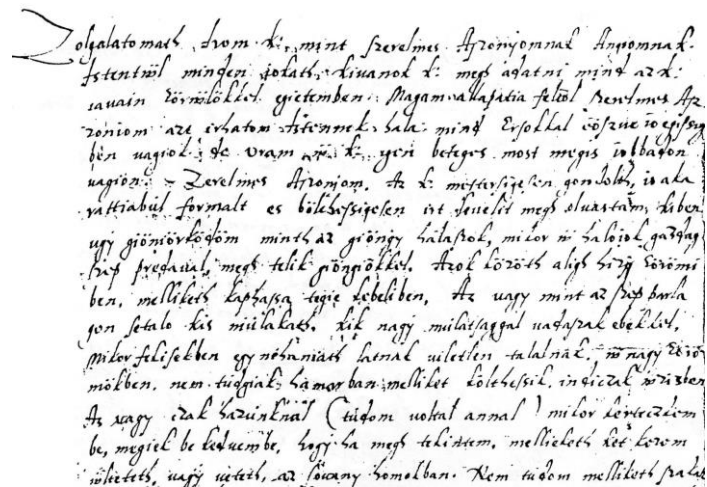 Zolgalatomath Irom k: mint szerelmes Aszonyomnak Angiomnak.
Istentwl minden iokath kivanok k: megh adatni mind az k:
iavain Eörwlökkel egietemben. Magam allapatia felöl Szerelmes Asz
zoniom azt irhatom Istennek hala mind Ersokkal eöszve io egissig
ben vagiok, de Uram w k: igen beteges most megis iobbadon
vagion. Zerelmes Aszoniom. Az k: mestersigesen gondolth, io aka
rattiabul formalt es bölchessigesen irt levelit megh olvastam, kiben
ugy giöniörködöm minth az giöngy halaszok, mikor w halojok gazdag
szep predaval megh telik giöngiökkel. Azok közöth aligh hirig örömi
ben, melliketh kaphassa tegie kebeliben. Az vagy mint az szep barla
gon setalo kis mulakath. kik nagy mulatsaggal vadaszak ebekkel,
Mikor fekisekben egy nehaniath latnak viletlen talalnak, w nagy örö
mökben. nem tudgiak hamarban melliket költhessik, inditzak
Az vagy czak hazunknal (tudom voltal annal) mikor kerteczkem
be, megiek be kedvembe, hogy ha megh tekintem, mellieketh ket kezem
wlteteth, vagy veteth, az sovany homokban. Nem tudom melliketh szakaz